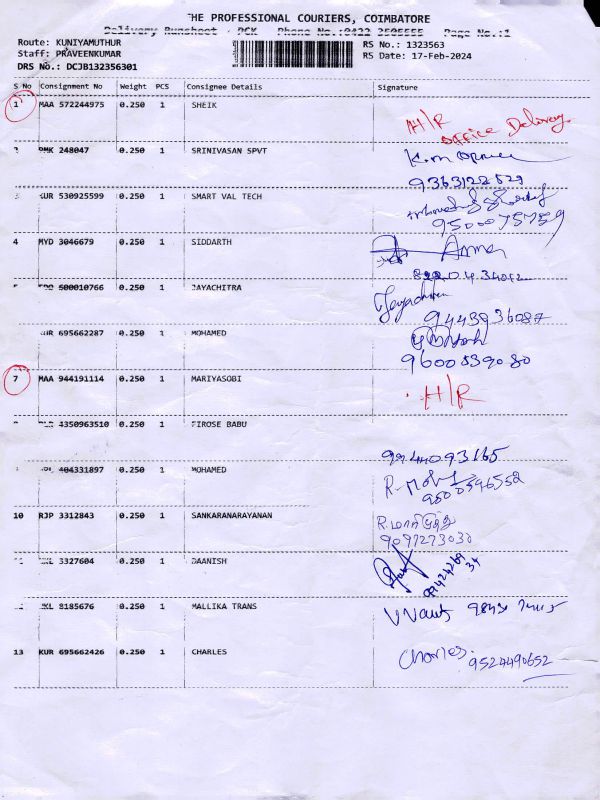 THE PROFESSIONAL COURIERS, COIMBATORE
Delivery Runsheet - PCK Phone No.:0422 2505555 Page No.:1
Route: KUNIYAMUTHUR RS No.: 1323563
Staff: PRAVEENKUMAR RS Date: 17-Feb-2024
DRS No.: DCJB132356301
S No Consignment No Weight PCS Consignee Details Signature
1 MAA 572244975 0.250 1 SHEIK
H/R
Office Delivery
PMK 248047 0.250 1 SRINIVASAN SPVT
9363122529
3 KUR 530925599 0.250 1 SMART VAL TECH
9500075759
4 MYD 3046679 0.250 1 SIDDARTH
5 500010766 0.250 1 JAYACHITRA
Jayachitra
9443936087
695662287 0.250 1 MOHAMED
9600539080
7 MAA 944191114 0.250 1 MARIYASOBI H/R
4350963510 0.250 1 FIROSE BABU
9944093165
404331897 0.250 1 MOHAMED
9500596552
10 RJP 3312843 0.250 1 SANKARANARAYANAN
9097273030
3327604 0.250 1 DAANISH
8185676 0.250 1 MALLIKA TRANS
13 KUR 695662426 0.250 1 CHARLES Charles. 9524490652